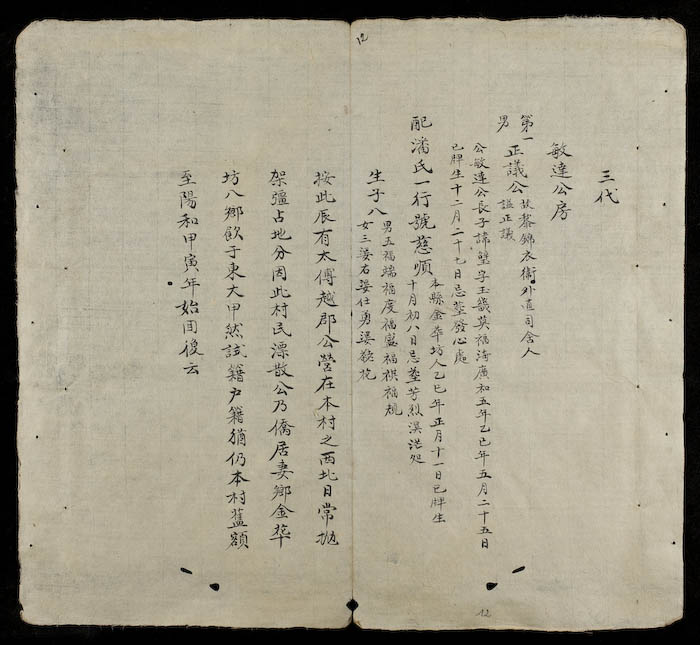 12
三代
敏達公房
第一男 正議公 故黎錦衣衛外直司舍人 諡正議
公敏達公長子諱璧字玉 英福海廣和五年乙巳年五月二十五日
巳牌生十二月二十七日忌墓發心處
配潘氏一行號慈順 本縣金華坊人乙巳年正月十一日巳牌生
十月初八日忌墓芳烈漠 処
生子八 男五福端福度福盛福祺福規
女三婆右婆仕勇婆 花
按此辰有太傅越郡公營在本村之西北日常拋
架彊占地分因此村民漂散公乃僑居妻鄉金華
坊八鄉飲于東大甲然試籍户籍猶仍本村舊額
至陽和甲寅年始回復云
12